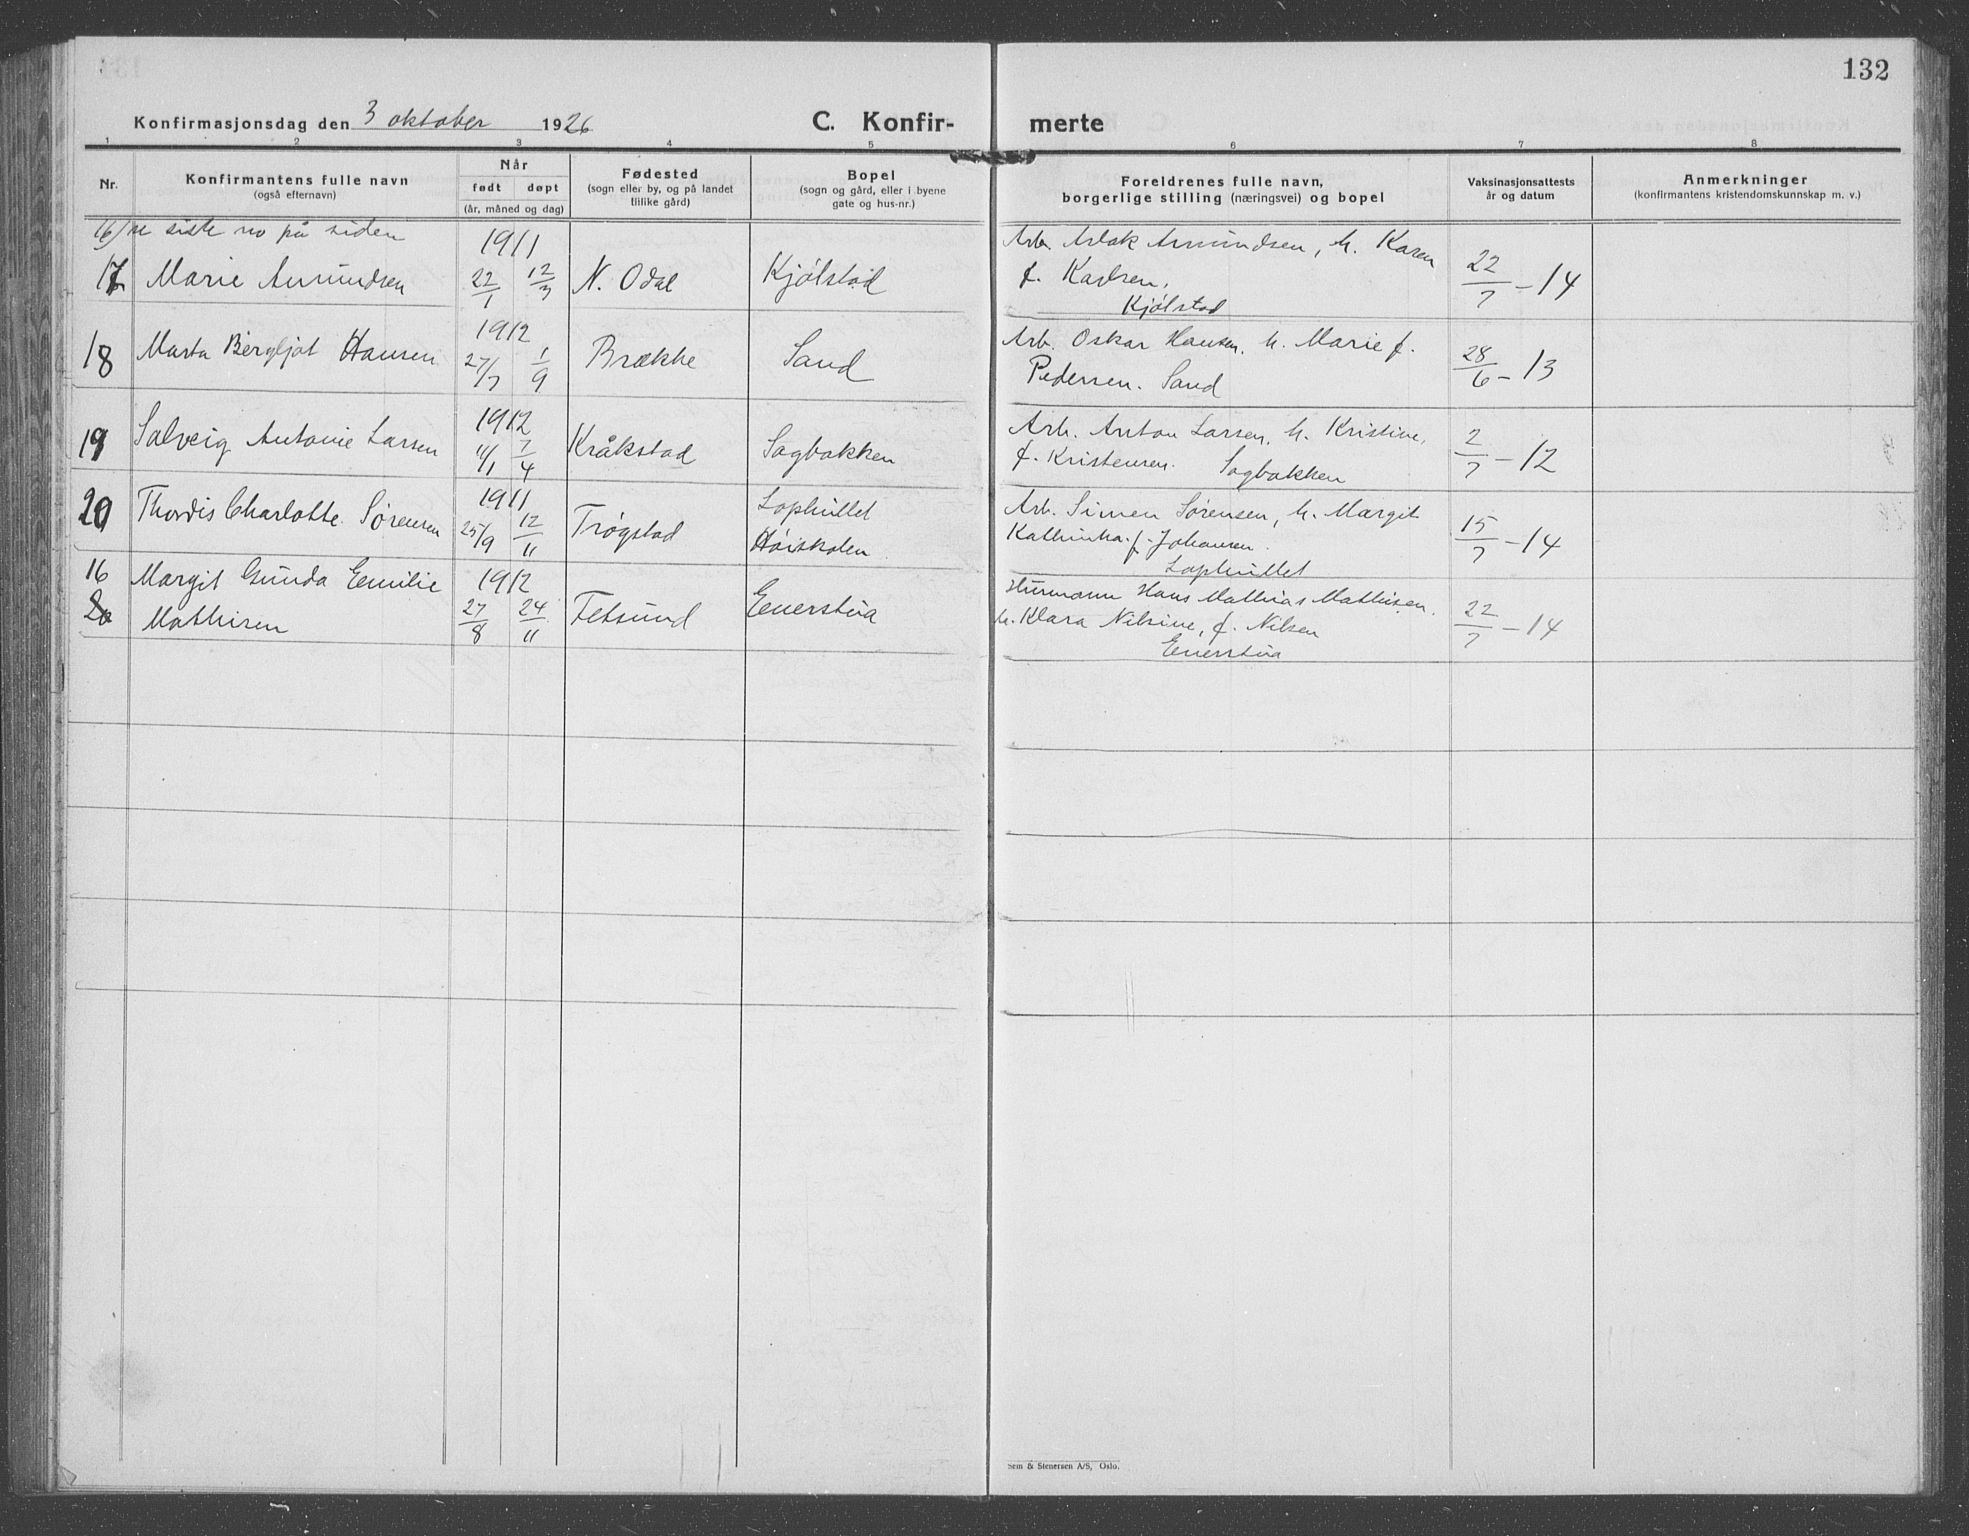 132
Konfirmasjonsdag den 3 oktober 1926
C. Konfir- merte
1 2 3 4 5 6 7 8
Nr.
Konfirmantens fulle navn
(også efternavn)
Når
født døpt
(år, måned og dag)
Fødested
(sogn eller by, og på landet
tillike gård)
Bopel
(sogn og gård, eller i byene
gate og hus-nr.)
Foreldrenes fulle navn,
borgerlige stilling (næringsvei) og bopel
Vaksinasjonsattests
år og datum
Anmerkninger
(konfirmantens kristendomskunnskap m. v.)
16/se siste no på siden
17 Marie Amundsen 1911 22/1 12/3 N. Odal Kjølstad
Arb. Aslak Amundsen, h. Karen
f. Karlsen,
Kjølstad
22/7 - 14
18 Marta Bergljot Hansen 1912 27/7 1/9 Brække Sand
Arb. Oskar Hansen, h. Marie f.
Pedersen. Sand
28/6 - 13
19 Solveig Antonie Larsen 1912 11/1 7/4 Kråkstad Sagbakken
Arb. Anton Larsen, h. Kristine,
f. Kristensen. Sagbakken
2/7 - 12
20 Thordis Charlotte Sørensen 1911 25/9 12/11 Trøgstad Lophullet
Høiskolen
Arb. Simen Sørensen, h. Margit
Kathinka f. Johansen.
Lophullet
15/7 - 14
16 Margit Gunda Emilie
Mathisen 1912 27/8 24/11 Fetsund Enerstua
Hurmann Hans Mathias Mathisen,
h. Klara Nilsine, f. Nilsen
Enerstua
22/7 - 14
Sem & Stenersen A/S, Oslo.